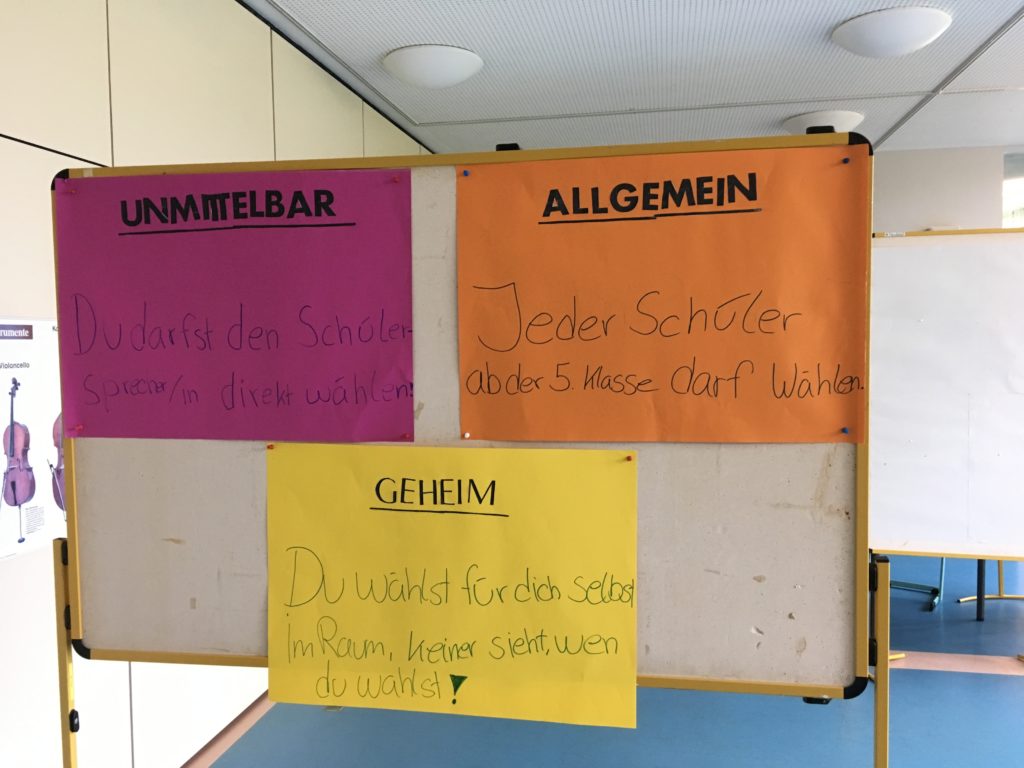 UNMITTELBAR
Du darfst den Schüler-
sprecher/in direkt wählen!
ALLGEMEIN
Jeder Schüler
ab der 5. Klasse darf wählen.
GEHEIM
Du wählst für dich selbst
im Raum, keiner sieht, wen
du wählst!
rumente
Violoncello